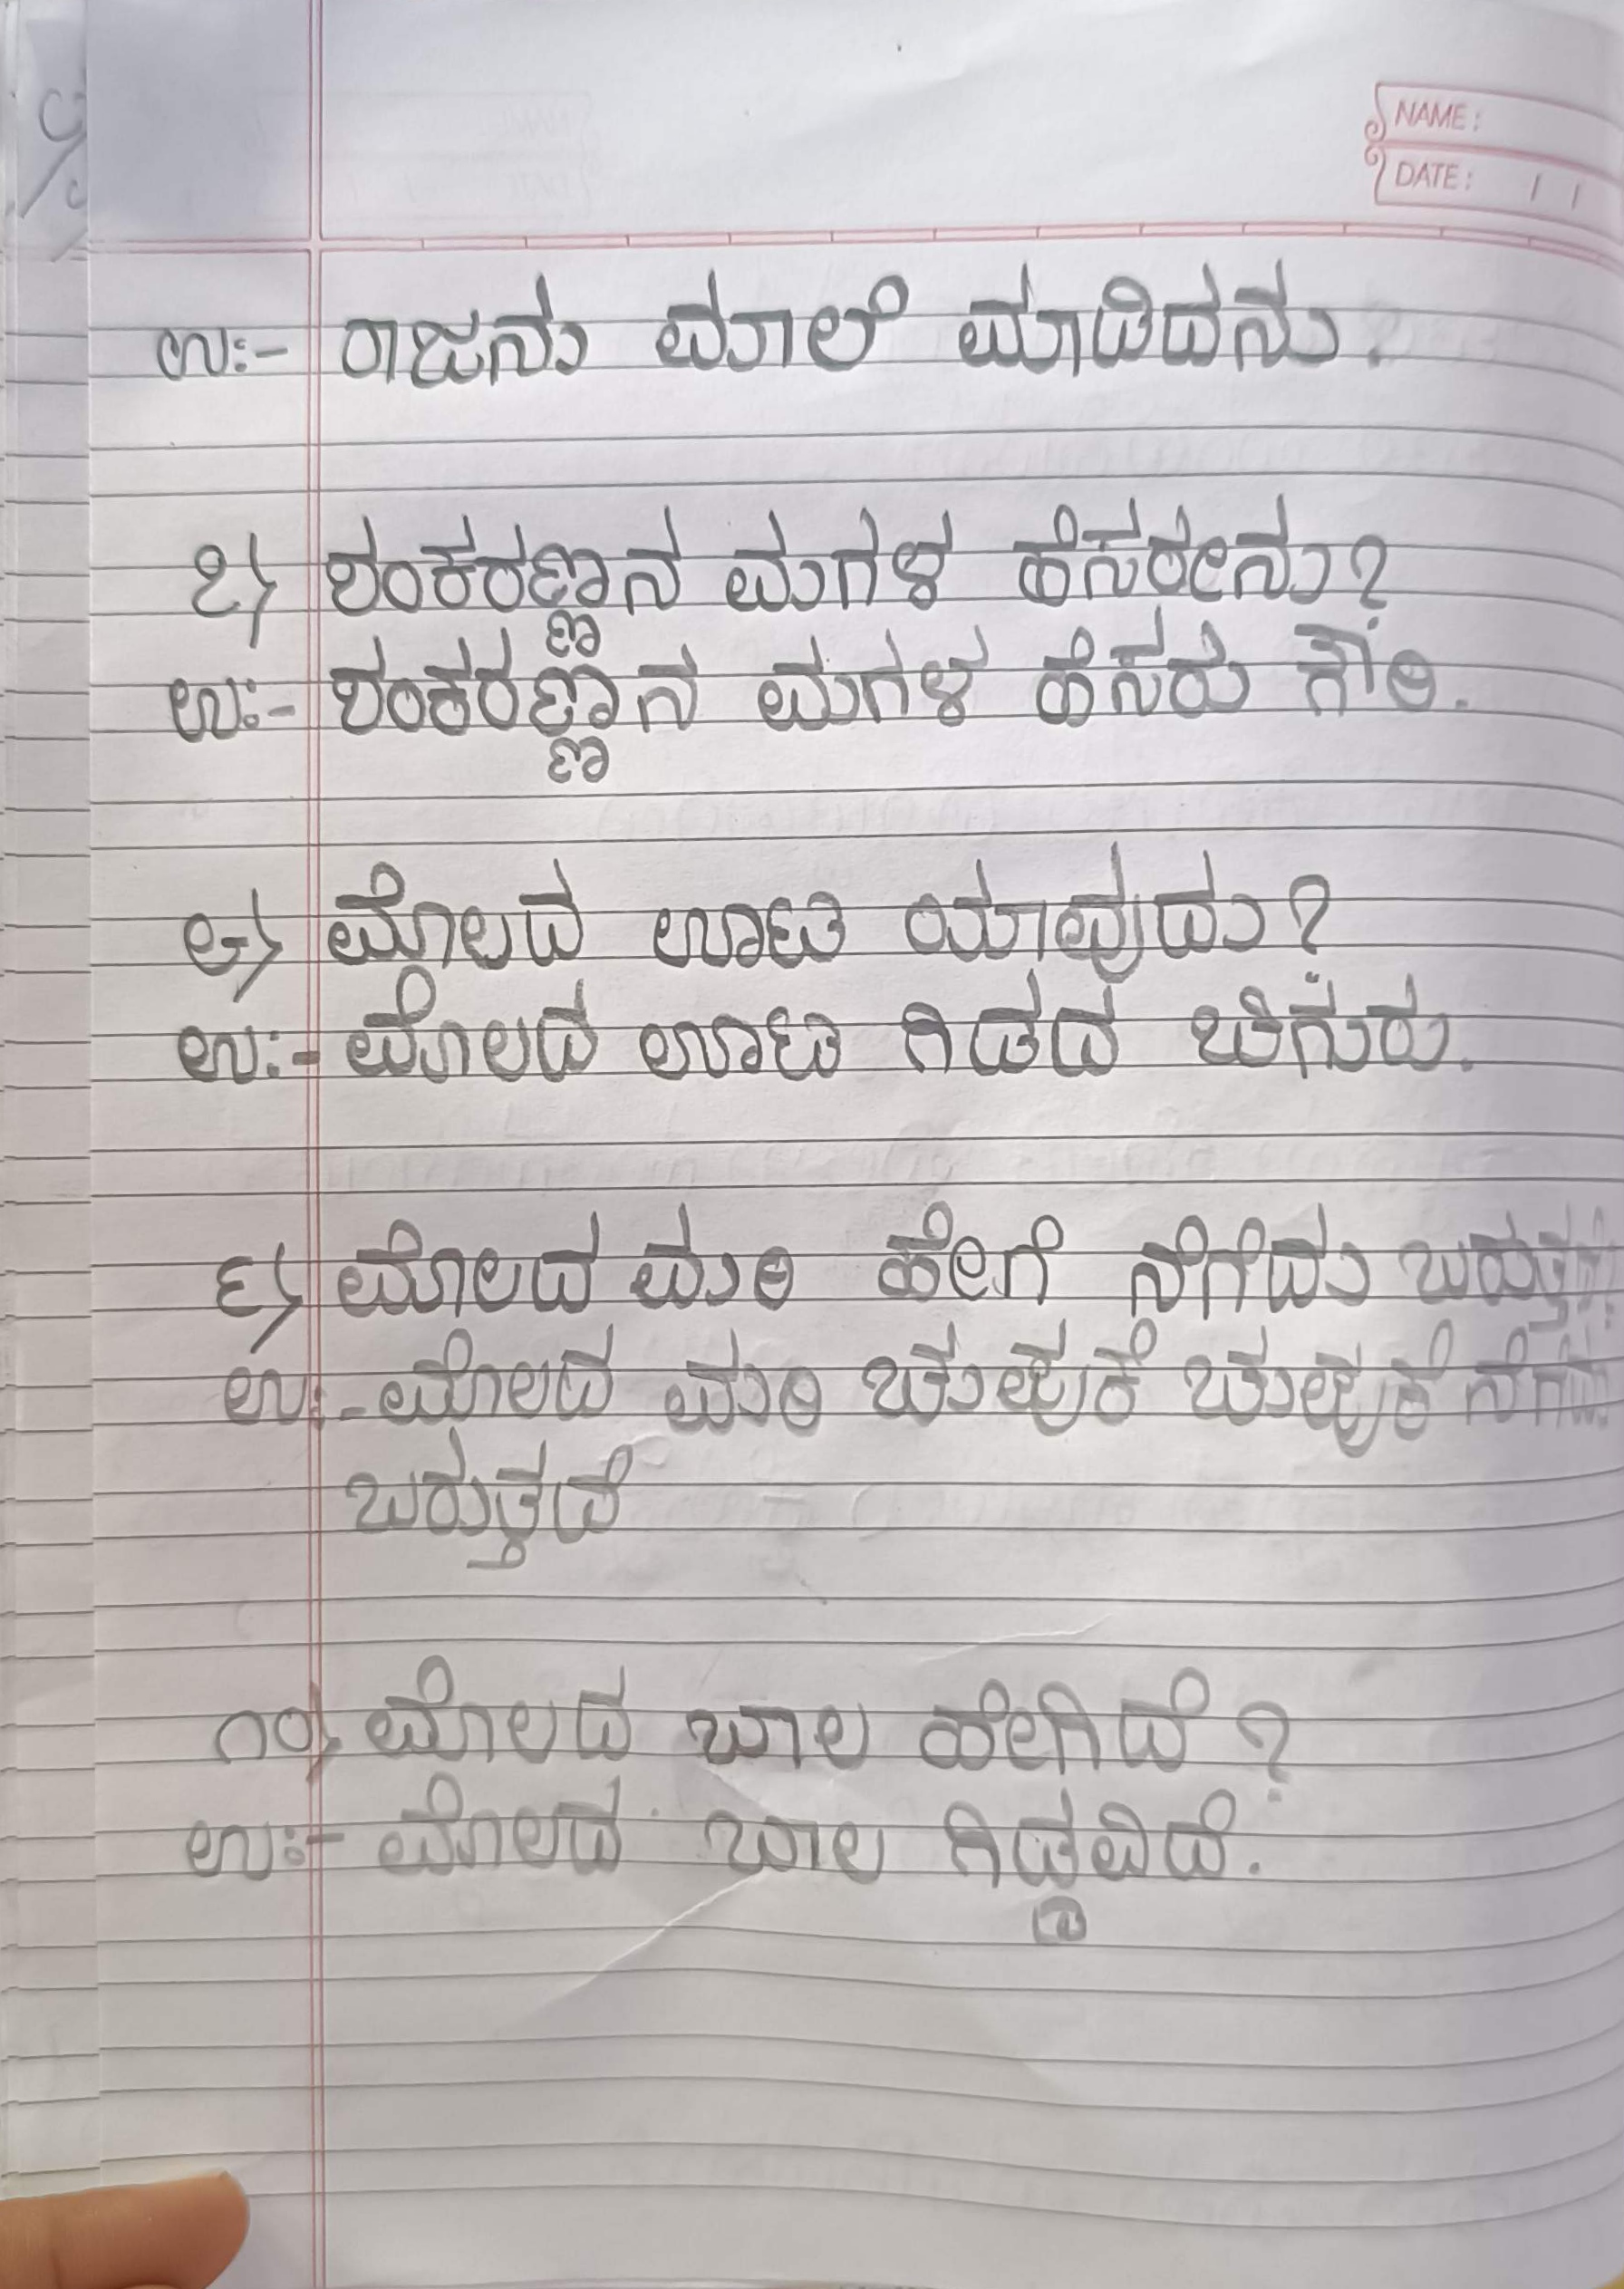 NAME:
DATE: / /
ಉ:- ರಾಜನು ಮಾಲೆ ಮಾಡಿದನು.
೭) ಶಂಕರಣ್ಣನ ಮಗಳ ಹೆಸರೇನು?
ಉ:- ಶಂಕರಣ್ಣನ ಮಗಳ ಹೆಸರು ಗೌರಿ.
೮) ಮೊಲದ ಊಟ ಯಾವುದು?
ಉ:- ಮೊಲದ ಊಟ ಗಿಡದ ಚಿಗುರು.
೯) ಮೊಲದ ಮರಿ ಹೇಗೆ ನೆಗೆದು ಬರುತ್ತದೆ?
ಉ:- ಮೊಲದ ಮರಿ ಚಂಗನೆ ನೆಗೆದು
ಬರುತ್ತದೆ
೧೦) ಮೊಲದ ಬಾಲ ಹೇಗಿದೆ?
ಉ:- ಮೊಲದ ಬಾಲ ಗಿಡ್ಡವಿದೆ.